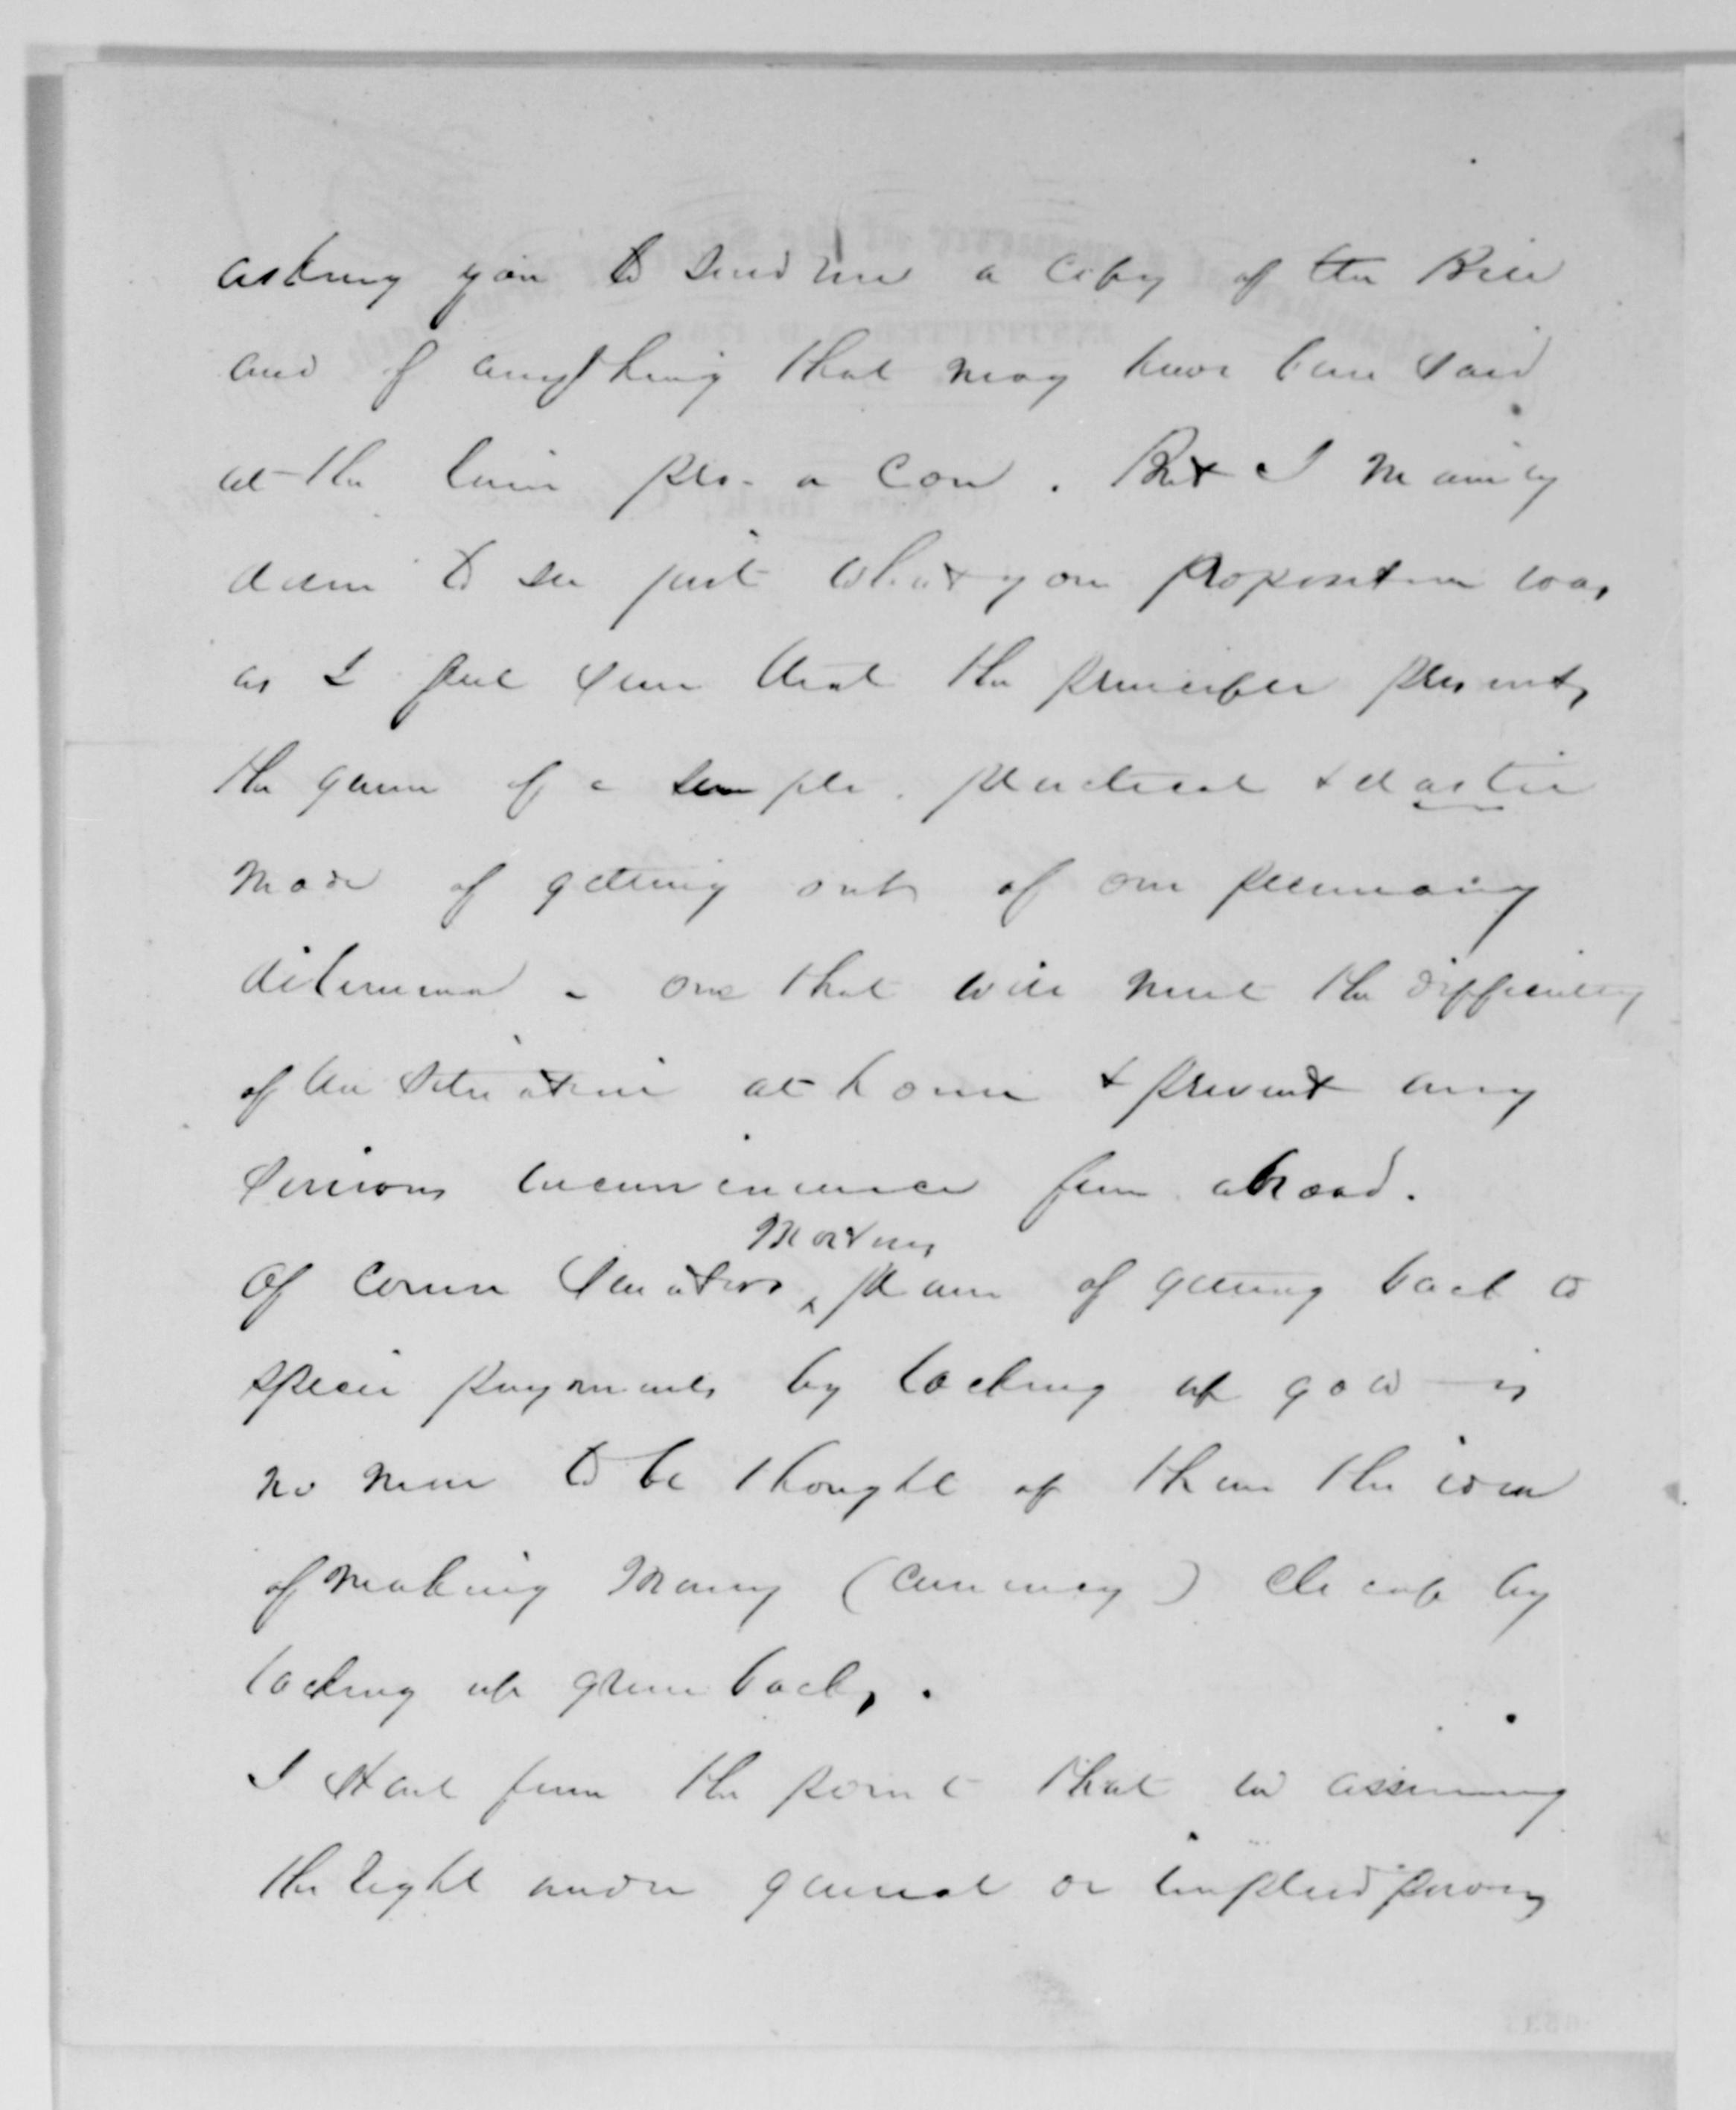 asking you to send me a copy of the Bill
and of anything that may have been said
at the time pro. & con. But I mainly
desire to see just what your proposition was,
as I feel sure that the principle presents
the germ of a simple, practical & elastic
mode of getting out of our pecuniary
dilemma - one that will meet the difficulty
of the situation at home & prevent any
serious inconvenience from abroad.
Of course Senator Mortons plan of getting back to
specie payments by locking up gold is
no more to be thought of than the idea
of making money (currency) cheap by
locking up greenbacks.
I start from the point that in assuming
the right under general or implied powers